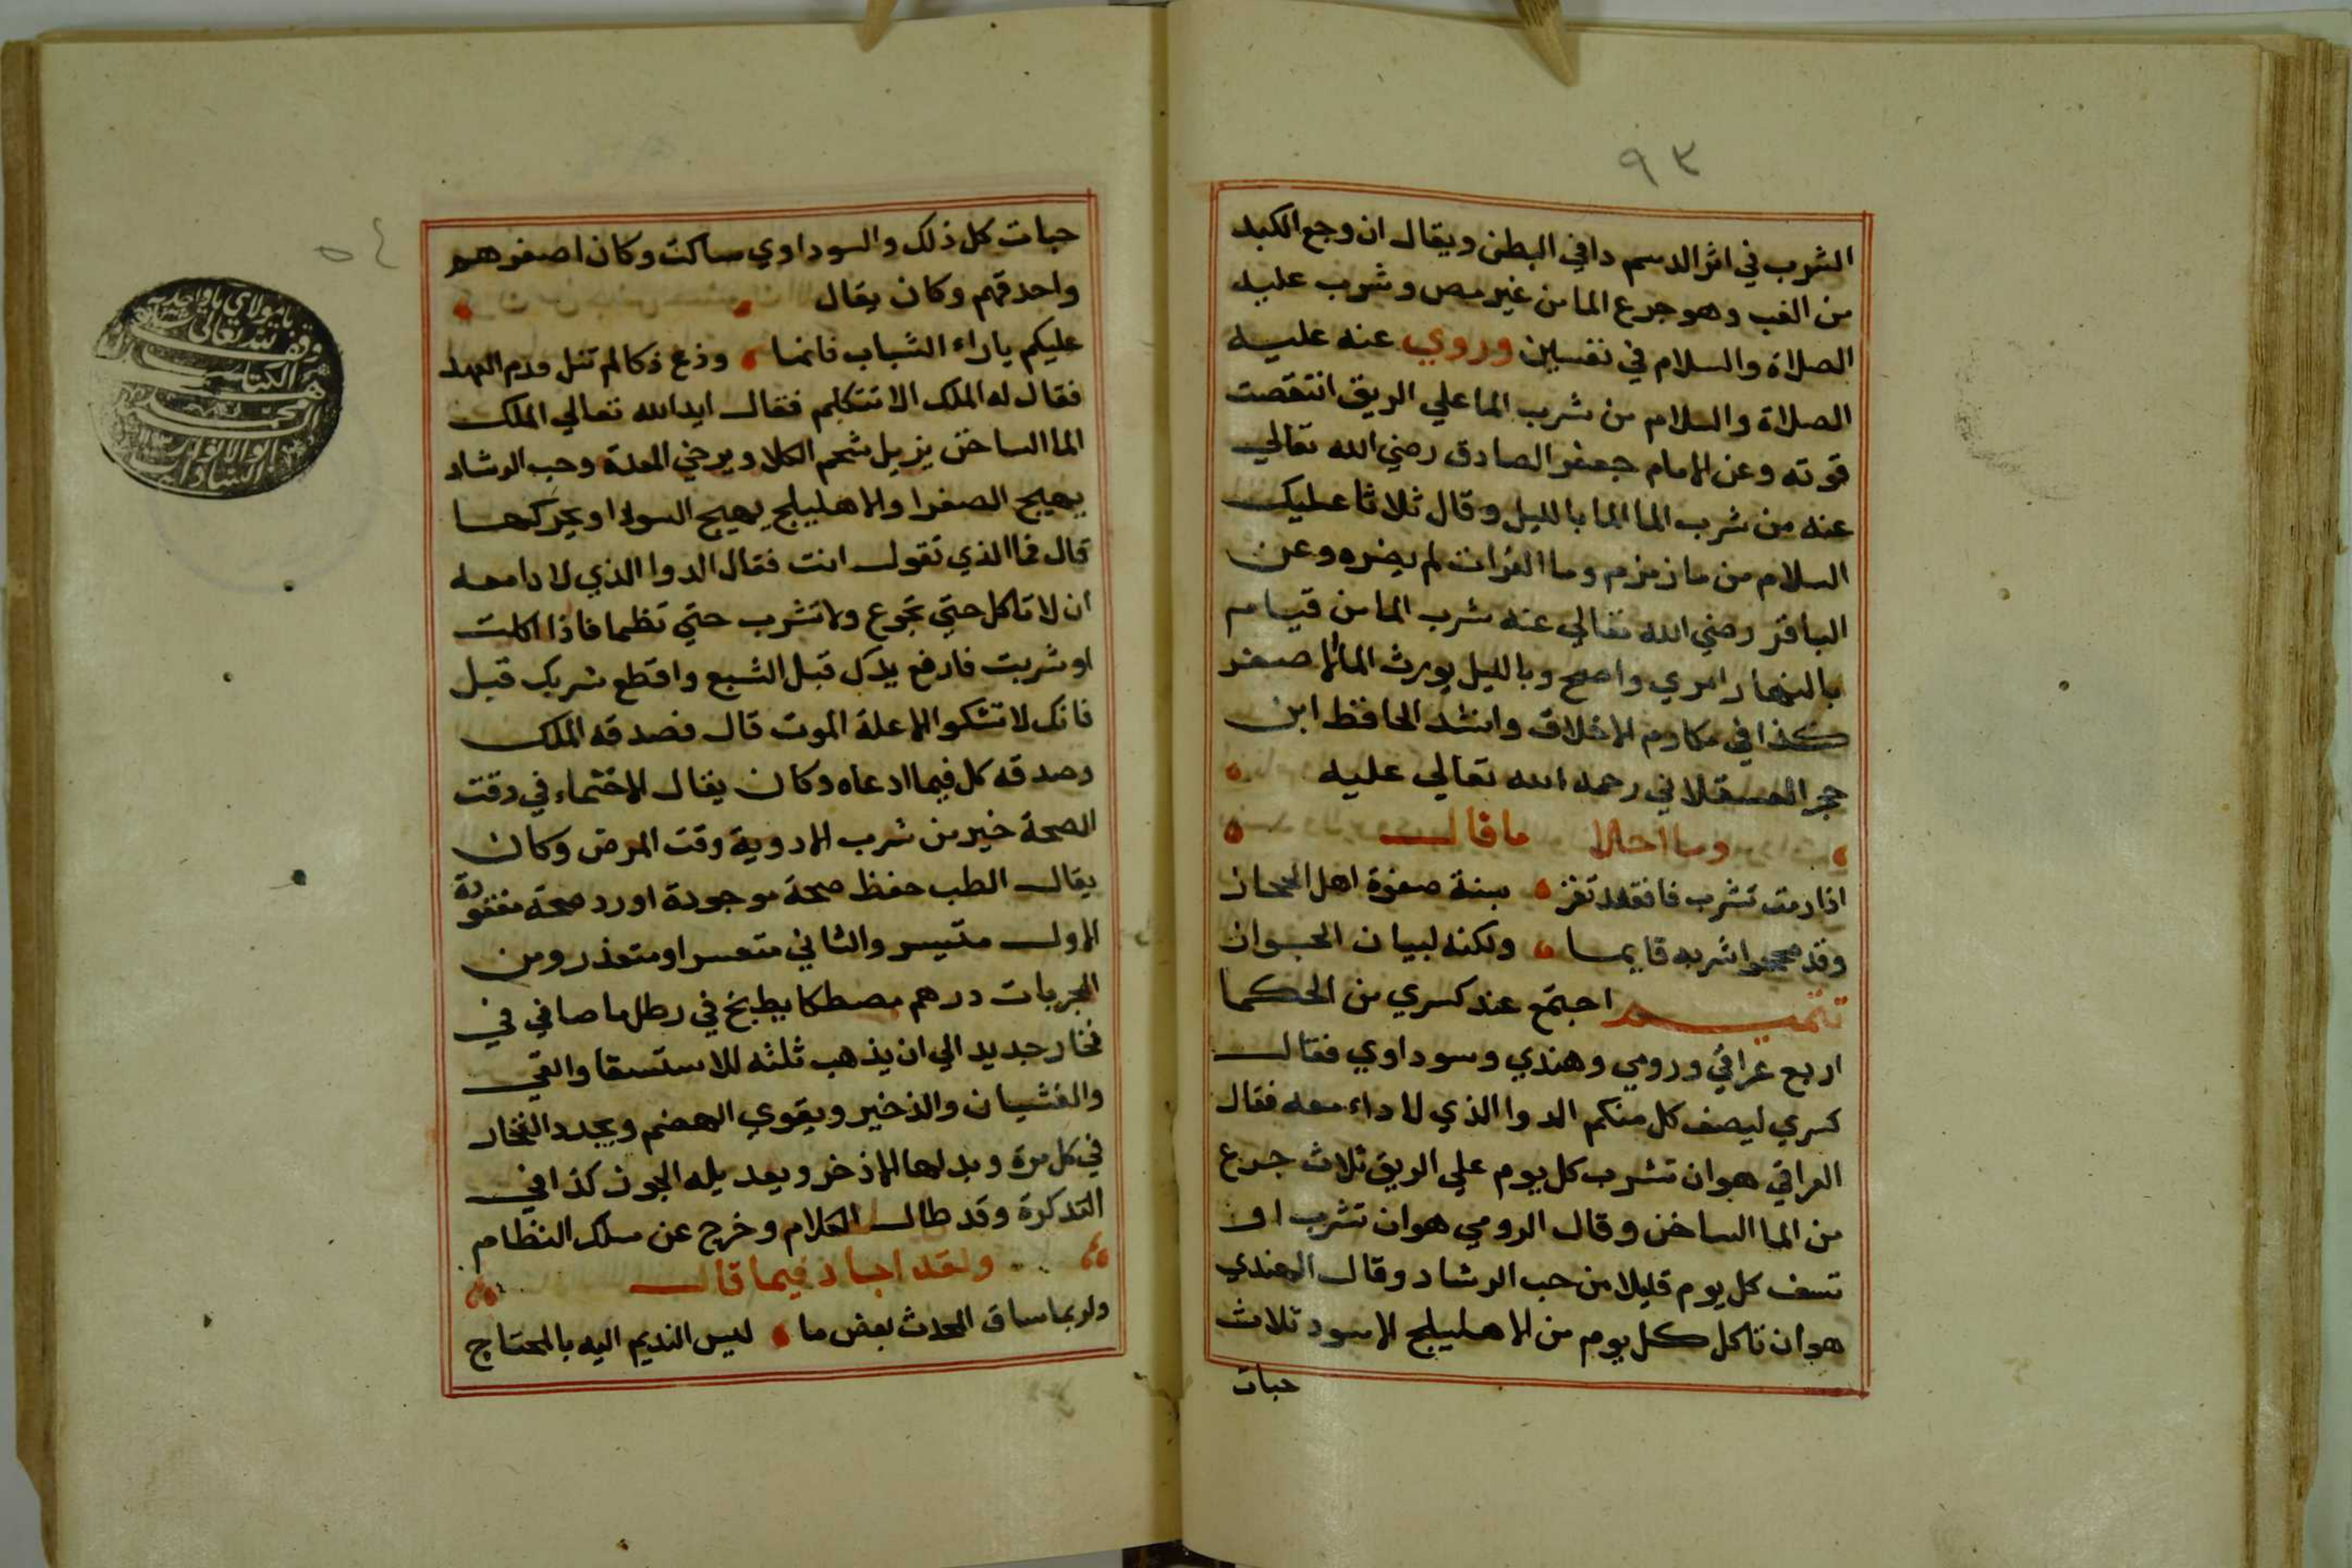 ٩٣
الشرب في اثر الدسم دافي البطن ويقال ان وجع الكبد
من الغب وهو جرع الما من غير مص وشرب عليه
الصلاة والسلام في نفسين وروي عنه عليه
الصلاة والسلام من شرب الما علي الريق انتقصت
قوته وعن الامام جعفر الصادق رضي الله تعالي
عنه من شرب الما الما بالليل وقال ثلاثا عليك
السلام من ما زمزم وما الفرات لم يضره وعن
الباقر رضي الله تعالي عنه شرب الما من قيام
بالنهار امري واصح وبالليل يورث الما الاصفر
كذا في مكارم الاخلاق وانشد الحافظ ابن
حجر العسقلاني رحمه الله تعالي عليه
وما احلا ما قال
اذا رمت تشرب فاقعد تفز سنة صفوة اهل الحجاز
وقد صححوا شربه قايما ولكنه لبيان الجواز
تتميم اجتمع عند كسري من الحكما
اربع عراقي ورومي وهندي وسوداوي فقال
كسري ليصف كل منكم الدوا الذي لا داء معه فقال
العراقي هو ان تشرب كل يوم علي الريق ثلاث جرع
من الما الساخن وقال الرومي هو ان تشرب او
تسف كل يوم قليلا من حب الرشاد وقال الهندي
هو ان تاكل كل يوم من الاهليلج الاسود ثلاث
حبات
٥٤
حبات كل ذلك والسوداوي ساكت وكان اصغرهم
واحدقهم وكان يقال
عليكم باراء الشباب فانها
فقال له الملك الا تتكلم فقال ايد الله تعالي الملك
الما الساخن يزيل شحم الكلا ويرخي المعدة وحب الرشاد
يهيج الصفرا والاهليلج يهيج السودا ويحركها
قال فما الذي تقول انت فقال الدوا الذي لا دا معه
ان لا تاكل حتي تجوع ولا تشرب حتي تظما فاذا اكلت
او شربت فارفع يدك قبل الشبع واقطع شربك قبل
فانك لا تشكو الا علة الموت قال فصدقه الملك
وصدقه كل فيما ادعاه وكان يقال الاختماء في وقت
الصحة خير من شرب الادوية وقت المرض وكان
يقال الطب حفظ صحة موجودة اورد صحة مفقودة
الاول متيسر والثاني متعسر او متعذر ومن
المجربات درهم مصطكا يطبخ في رطل ما صافي في
فخار جديد الي ان يذهب ثلثه للاستسقا والقي
والغشيان والذخير ويقوي الهضم ويجدد الفخار
في كل مرة وبدلها الاذخر ويعد يله الجوز كذا في
التذكرة وقد طال الكلام وخرج عن سلك النظام
ولقد اجاد فيما قال
ولربما ساق المحدث بعض ما ليس النديم اليه بالمحتاج